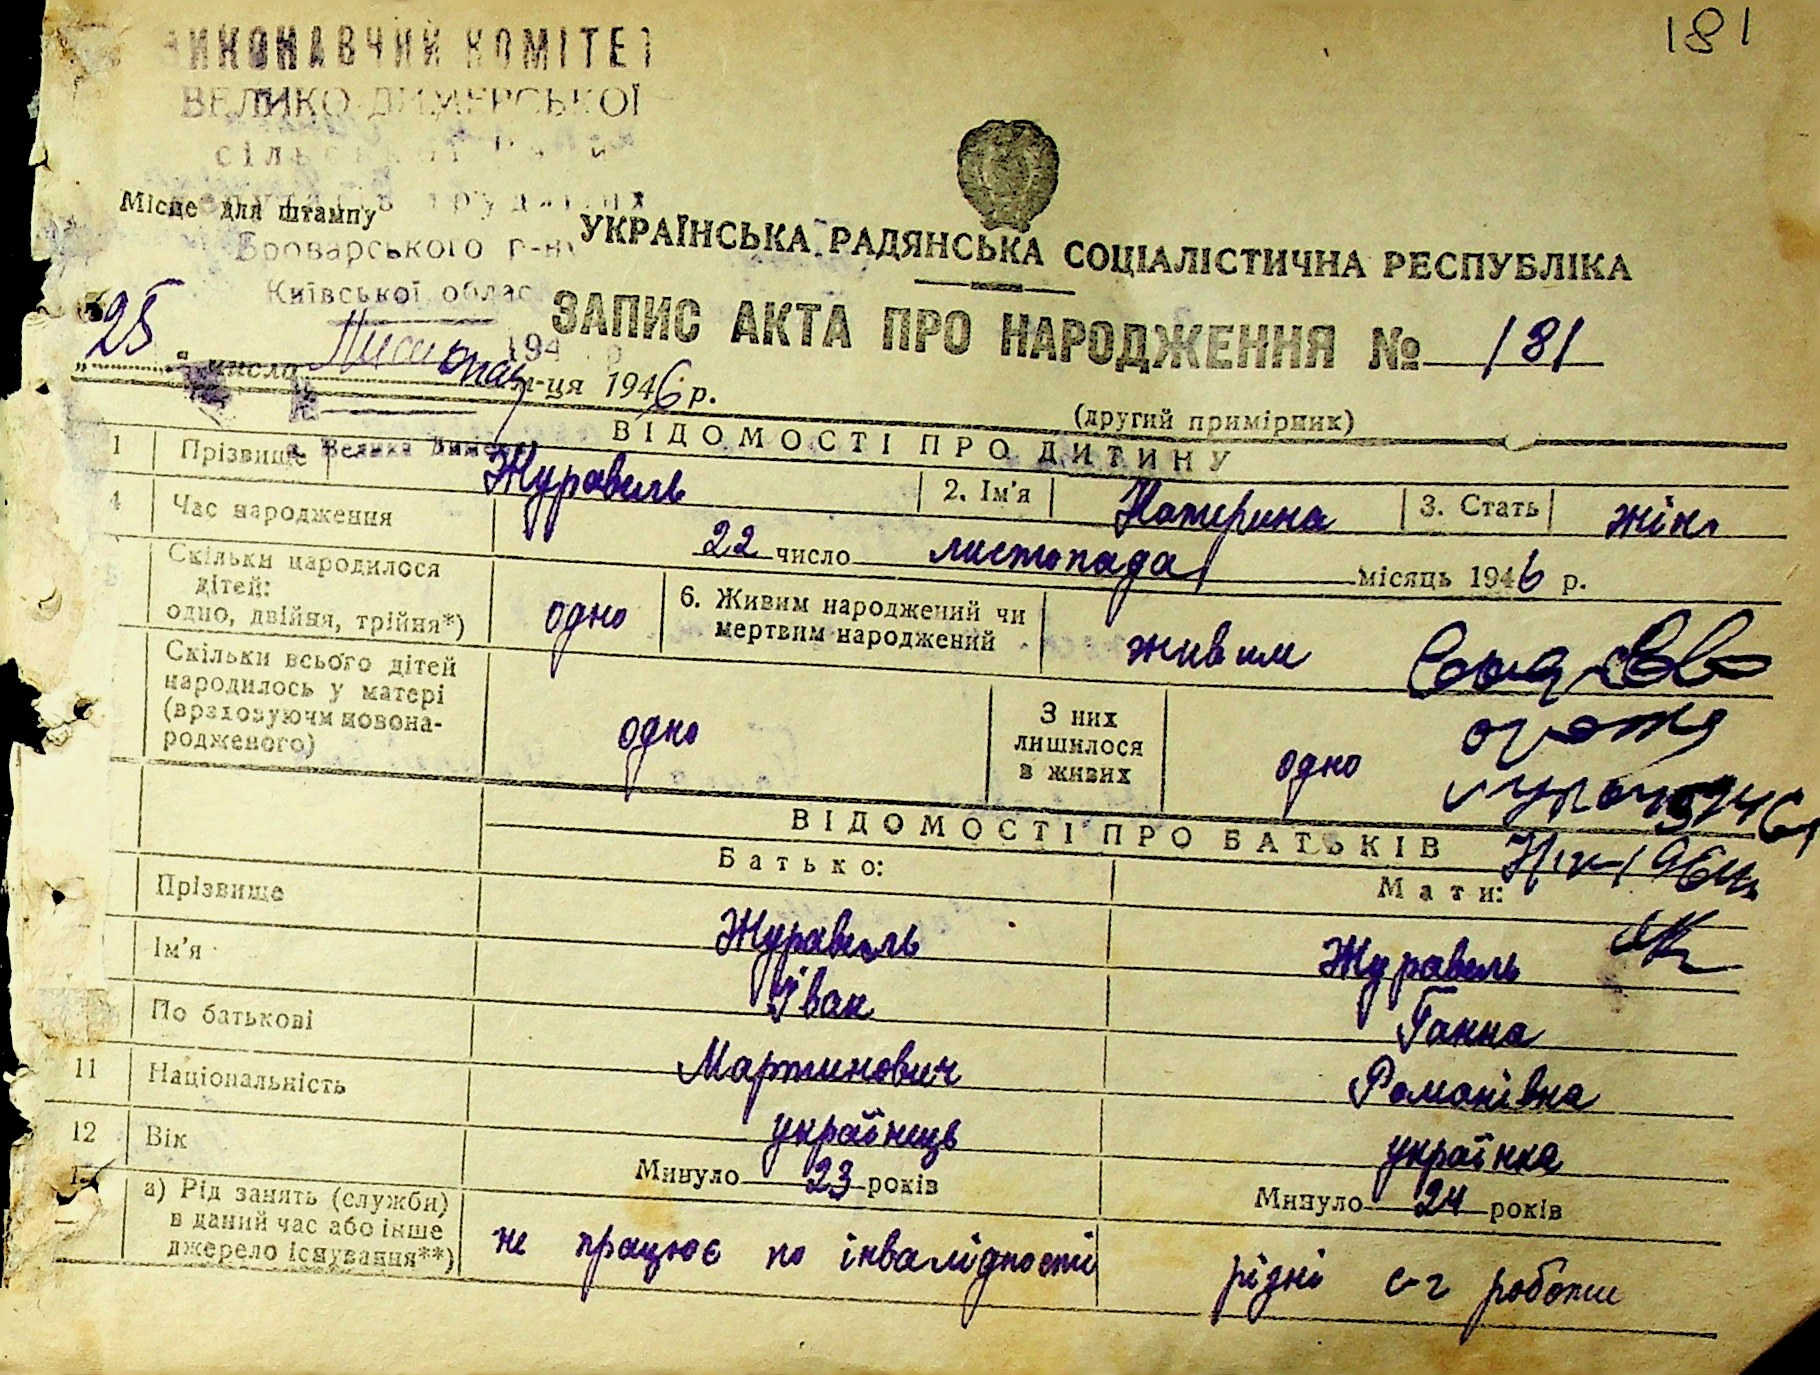 181
ВИКОНАВЧИЙ КОМІТЕТ
ВЕЛИКО-ДИМЕРСЬКОЇ
Місце для штампу
Броварського р-ну
Київської облас
УКРАЇНСЬКА РАДЯНСЬКА СОЦІАЛІСТИЧНА РЕСПУБЛІКА
ЗАПИС АКТА ПРО НАРОДЖЕННЯ № 181
„25" числа Листопад м-ця 1946 р.
(другий примірник)
ВІДОМОСТІ ПРО ДИТИНУ
с. Велика Димерка
1 Прізвище Журавель 2. Ім'я Катерина 3. Стать жін.
4 Час народження 22 число листопада місяць 1946 р.
Скільки народилося
дітей:
одно, двійня, трійня*) одно
6. Живим народжений чи
мертвим народжений живим
Скільки всього дітей
народилось у матері
(враховуючи новона-
родженого) одно
З них
лишилося
в живих одно
ВІДОМОСТІ ПРО БАТЬКІВ
Батько: Мати:
Прізвище Журавель Журавель
Ім'я Іван Ганна
По батькові Мартинович Романівна
11 Національність українець українка
12 Вік Минуло 23 років Минуло 24 років
а) Рід занять (служби)
в даний час або інше
джерело існування**) не працює по інвалідності рідні с-г роботи